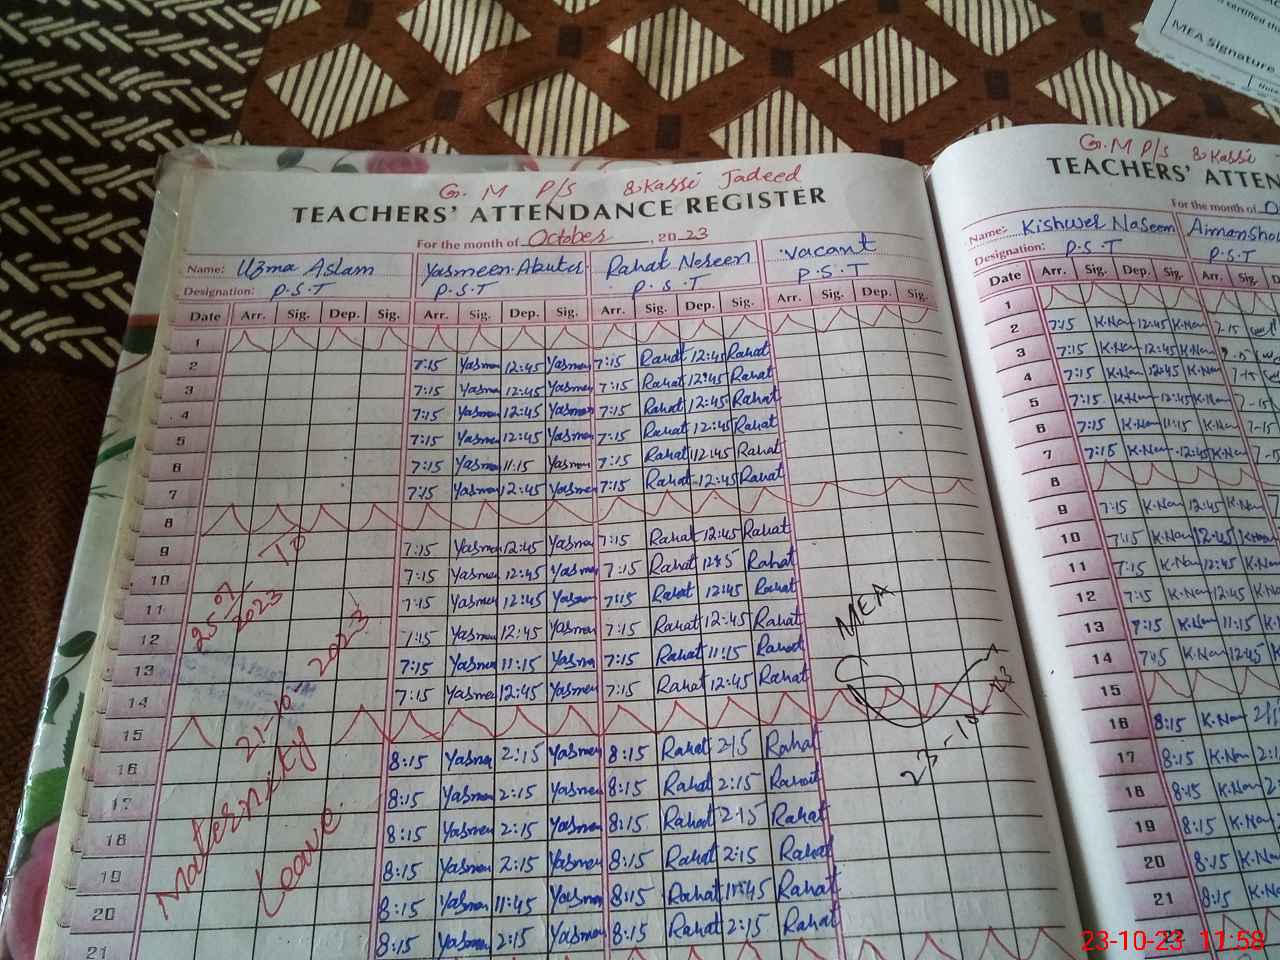 certified tha
MEA Signature
G. M P/S & Kassi Jadeed
TEACHERS' ATTENDANCE REGISTER
For the month of October, 2023
Name: Uzma Aslam Yasmeen Rahat Neseen vacant
Designation: P.S.T P.S.T P.S.T P.S.T
Date Arr. Sig. Dep. Sig. Arr. Sig. Dep. Sig. Arr. Sig. Dep. Sig. Arr. Sig. Dep. Sig.
1
2 7:15 Yasmen 12:45 Yasmen 7:15 Rahat 12:45 Rahat
3 7:15 Yasmen 12:45 Yasmen 7:15 Rahat 12:45 Rahat
4 7:15 Yasmen 12:45 Yasmen 7:15 Rahat 12:45 Rahat
5 7:15 Yasmen 12:45 Yasmen 7:15 Rahat 12:45 Rahat
6 7:15 Yasmen 11:15 Yasmen 7:15 Rahat 12:45 Rahat
7 7:15 Yasmen 12:45 Yasmen 7:15 Rahat 12:45 Rahat
8
9 7:15 Yasmen 12:45 Yasmen 7:15 Rahat 12:45 Rahat
10 7:15 Yasmen 12:45 Yasmen 7:15 Rahat 12:45 Rahat
11 7:15 Yasmen 12:45 Yasmen 7:15 Rahat 12:45 Rahat
12 7:15 Yasmen 12:45 Yasmen 7:15 Rahat 12:45 Rahat
13 7:15 Yasmen 11:15 Yasmen 7:15 Rahat 11:15 Rahat
14 7:15 Yasmen 12:45 Yasmen 7:15 Rahat 12:45 Rahat
15
16 8:15 Yasmen 2:15 Yasmen 8:15 Rahat 2:15 Rahat
17 8:15 Yasmen 2:15 Yasmen 8:15 Rahat 2:15 Rahat
18 8:15 Yasmen 2:15 Yasmen 8:15 Rahat 2:15 Rahat
19 8:15 Yasmen 2:15 Yasmen 8:15 Rahat 2:15 Rahat
20 8:15 Yasmen 11:45 Yasmen 8:15 Rahat 11:45 Rahat
21 8:15 Yasmen 2:15 Yasmen 8:15 Rahat 2:15 Rahat
25-07-2023 To
21-10-2023
Maternity
Leave
MEA
23-10-23
G.M P/S & Kassi
TEACHERS' ATTEN
For the month of O
Name: Kishwer Naseem
Designation: P.S.T P.S.T
Date Arr. Sig. Dep. Sig. Arr. Sig.
1
2 7:15 K.Nas 12:45 K.Nas 7-15
3 7:15 K.Nas 12:45 K.Nas
4 7:15 K.Nas 12:45 K.Nas 7-15
5 7:15 K.Nas 12:45 K.Nas 7-15
6 7:15 K.Nas 11:15 K.Nas 7-15
7 7:15 K.Nas 12:45 K.Nas
8
9 7:15 K.Nas 12:45 K.Nas
10 7:15 K.Nas 12:45 K.Nas
11 7:15 K.Nas 12:45 K.Nas
12 7:15 K.Nas 12:45 K.Nas
13 7:15 K.Nas 11:15
14 7:15 K.Nas 12:45
15
16 8:15 K.Nas
17 8:15 K.Nas
18 8:15 K.Nas
19 8:15 K.Nas
20 8:15 K.Nas
21 8:15 K.Nas
22
23-10-23 11:58